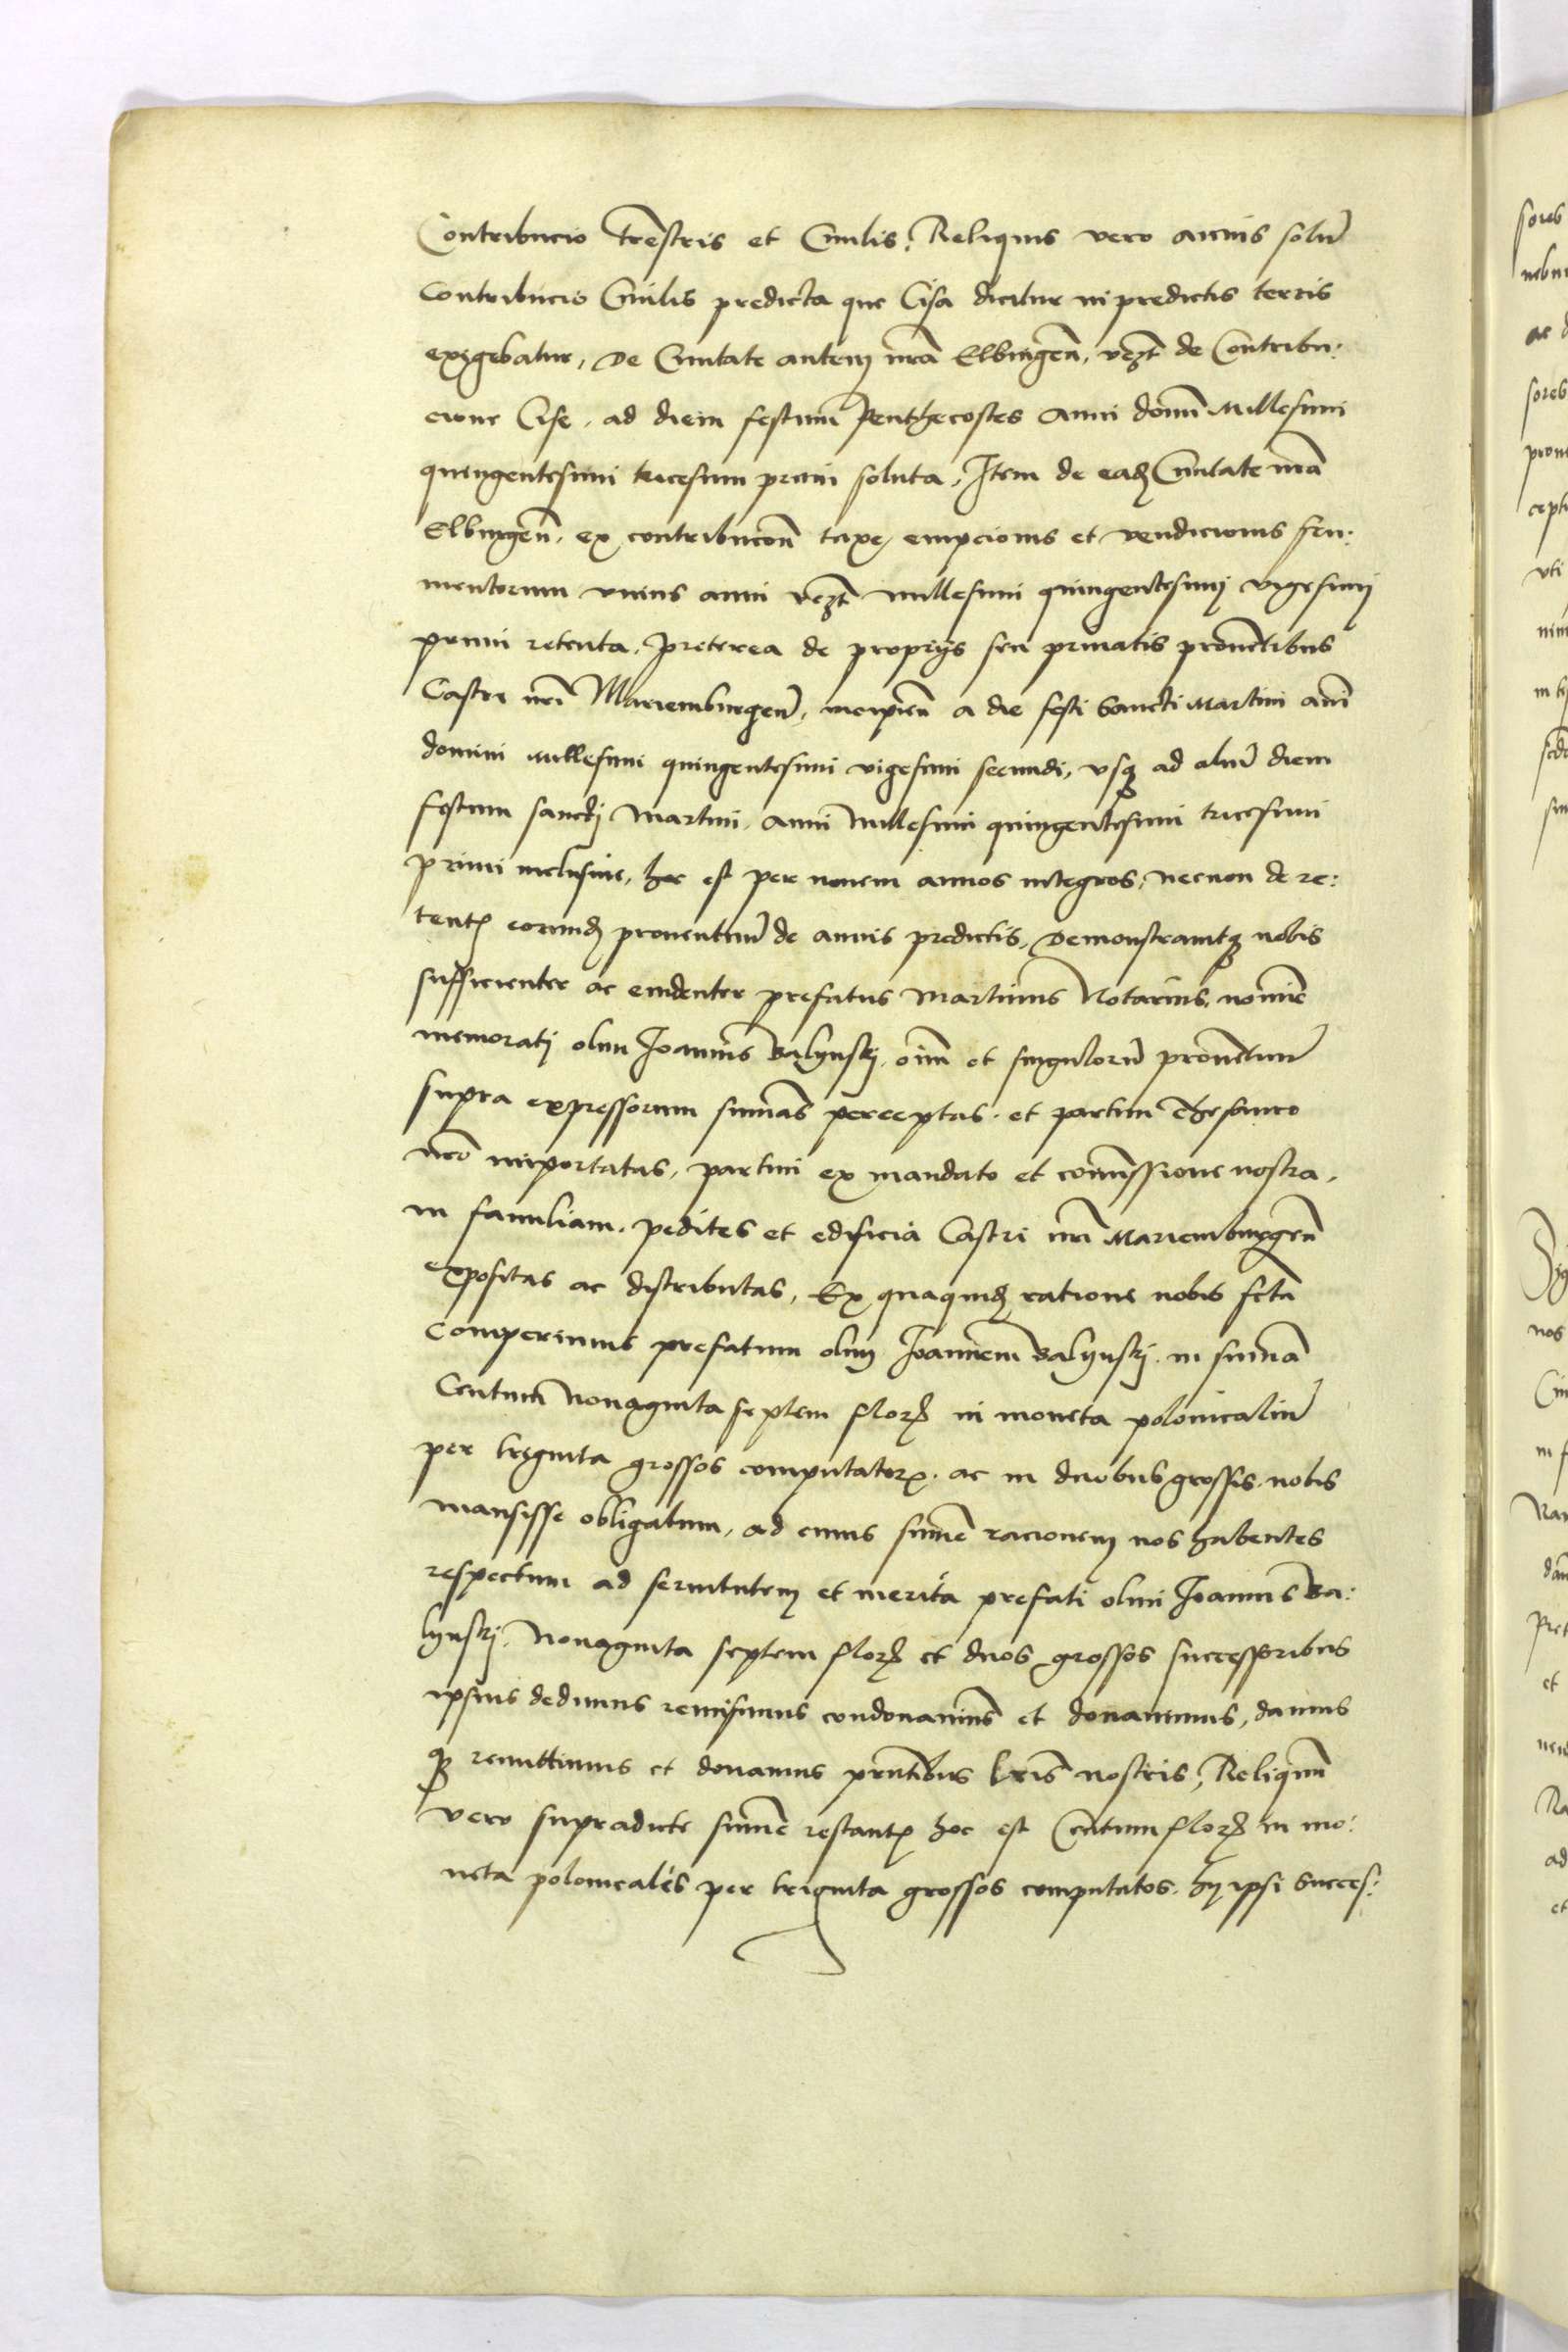 Contribucio trēstris et Civilis, Reliquis vero annis solū
contribucio Civilis predicta que Cisa dicitur in predictis terris
exigebatur, De Civitate autem nrā Elbingeñ, vezt de Contribu:
cione Cise, ad diem festum Penthecostes anni domī Millesimi
quingentesimi tricesimi primi soluta, Item de eadӡ Civitate nrā
Elbingeñ, ex contribucioñ taxe, empcionis et vendicionis fru:
mentorum unius anni vezt millesimi quingentesimj vigesimj
primi retenta, Preterea de proprijs seu privatis proventibus
Castri nrī Mariemburgeñ, incipieñ a die festi Sancti Martini anī
domini Millesimi quingentesimi vigesimi secundi, usqӡ ad aliū diem
festum sanctj Martini, anni Millesimi quingentesimi tricesimi
primi inclusive, hoc est per novem annos integros, necnon de re:
tentꝭ eorundӡ proventuū de annis predictis, Demonstravitqӡ nobis
sufficienter ac evidenter prefatus Martinus Notarius, nomīe
memoratj olim Joannis Balynskj, oīm et singulorū proventuū
supra expressorum sumās perceptas, et partim Thesauro
nrō importatas, partim ex mandato et comissione nostra,
in familiam, pedites et edificia Castri nrī Mariemburgeñ
expositas ac distributas, Ex quaquidӡ ratione nobis fcta
Comperimus prefatum olim Joannem Balynskj, in sumā
Centum Nonaginta septem florӡ in moneta polonicaliū
per triginta grossos computatorꝝ, ac in duobus grossis, nobis
mansisse obligatum, ad cuius sumē racionem nos habentes
respectum ad servitutem et merita prefati olim Joannis Ba:
lynskj, Nonaginta septem florӡ et duos grossos successoribus
ipsius dedimus remisimus condonavimus et donavimus, damus
qӡ remittimus et donamus prntibus lrīs nostris, Reliquū
vero supradicte sumē restantꝭ hoc est Centum florӡ in mo:
neta polonicales per triginta grossos computatos, hij ipsi Succes: